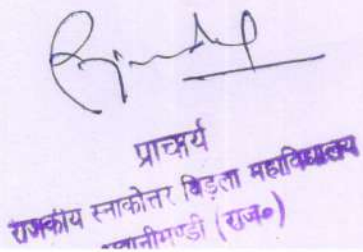 प्राचार्य
राजकीय स्नाकोत्तर बिड़ला महाविद्यालय
भवानीमण्डी (राज०)